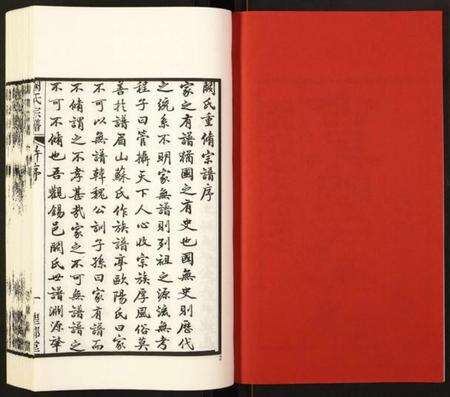 闕氏重脩宗譜序
家之有譜猶國之有史也國無史則歷代
之統系不明家無譜則列祖之源流無考
程子曰管攝天下人心收宗族厚風俗莫
善於譜眉山蘇氏作族譜亭歐陽氏曰家
不可以無譜韓魏公訓子孫曰家有譜而
不脩謂之不孝甚哉家之不可無譜譜之
不可不脩也吾觀錫邑闕氏世譜淵源肇
闕氏宗譜
序
一